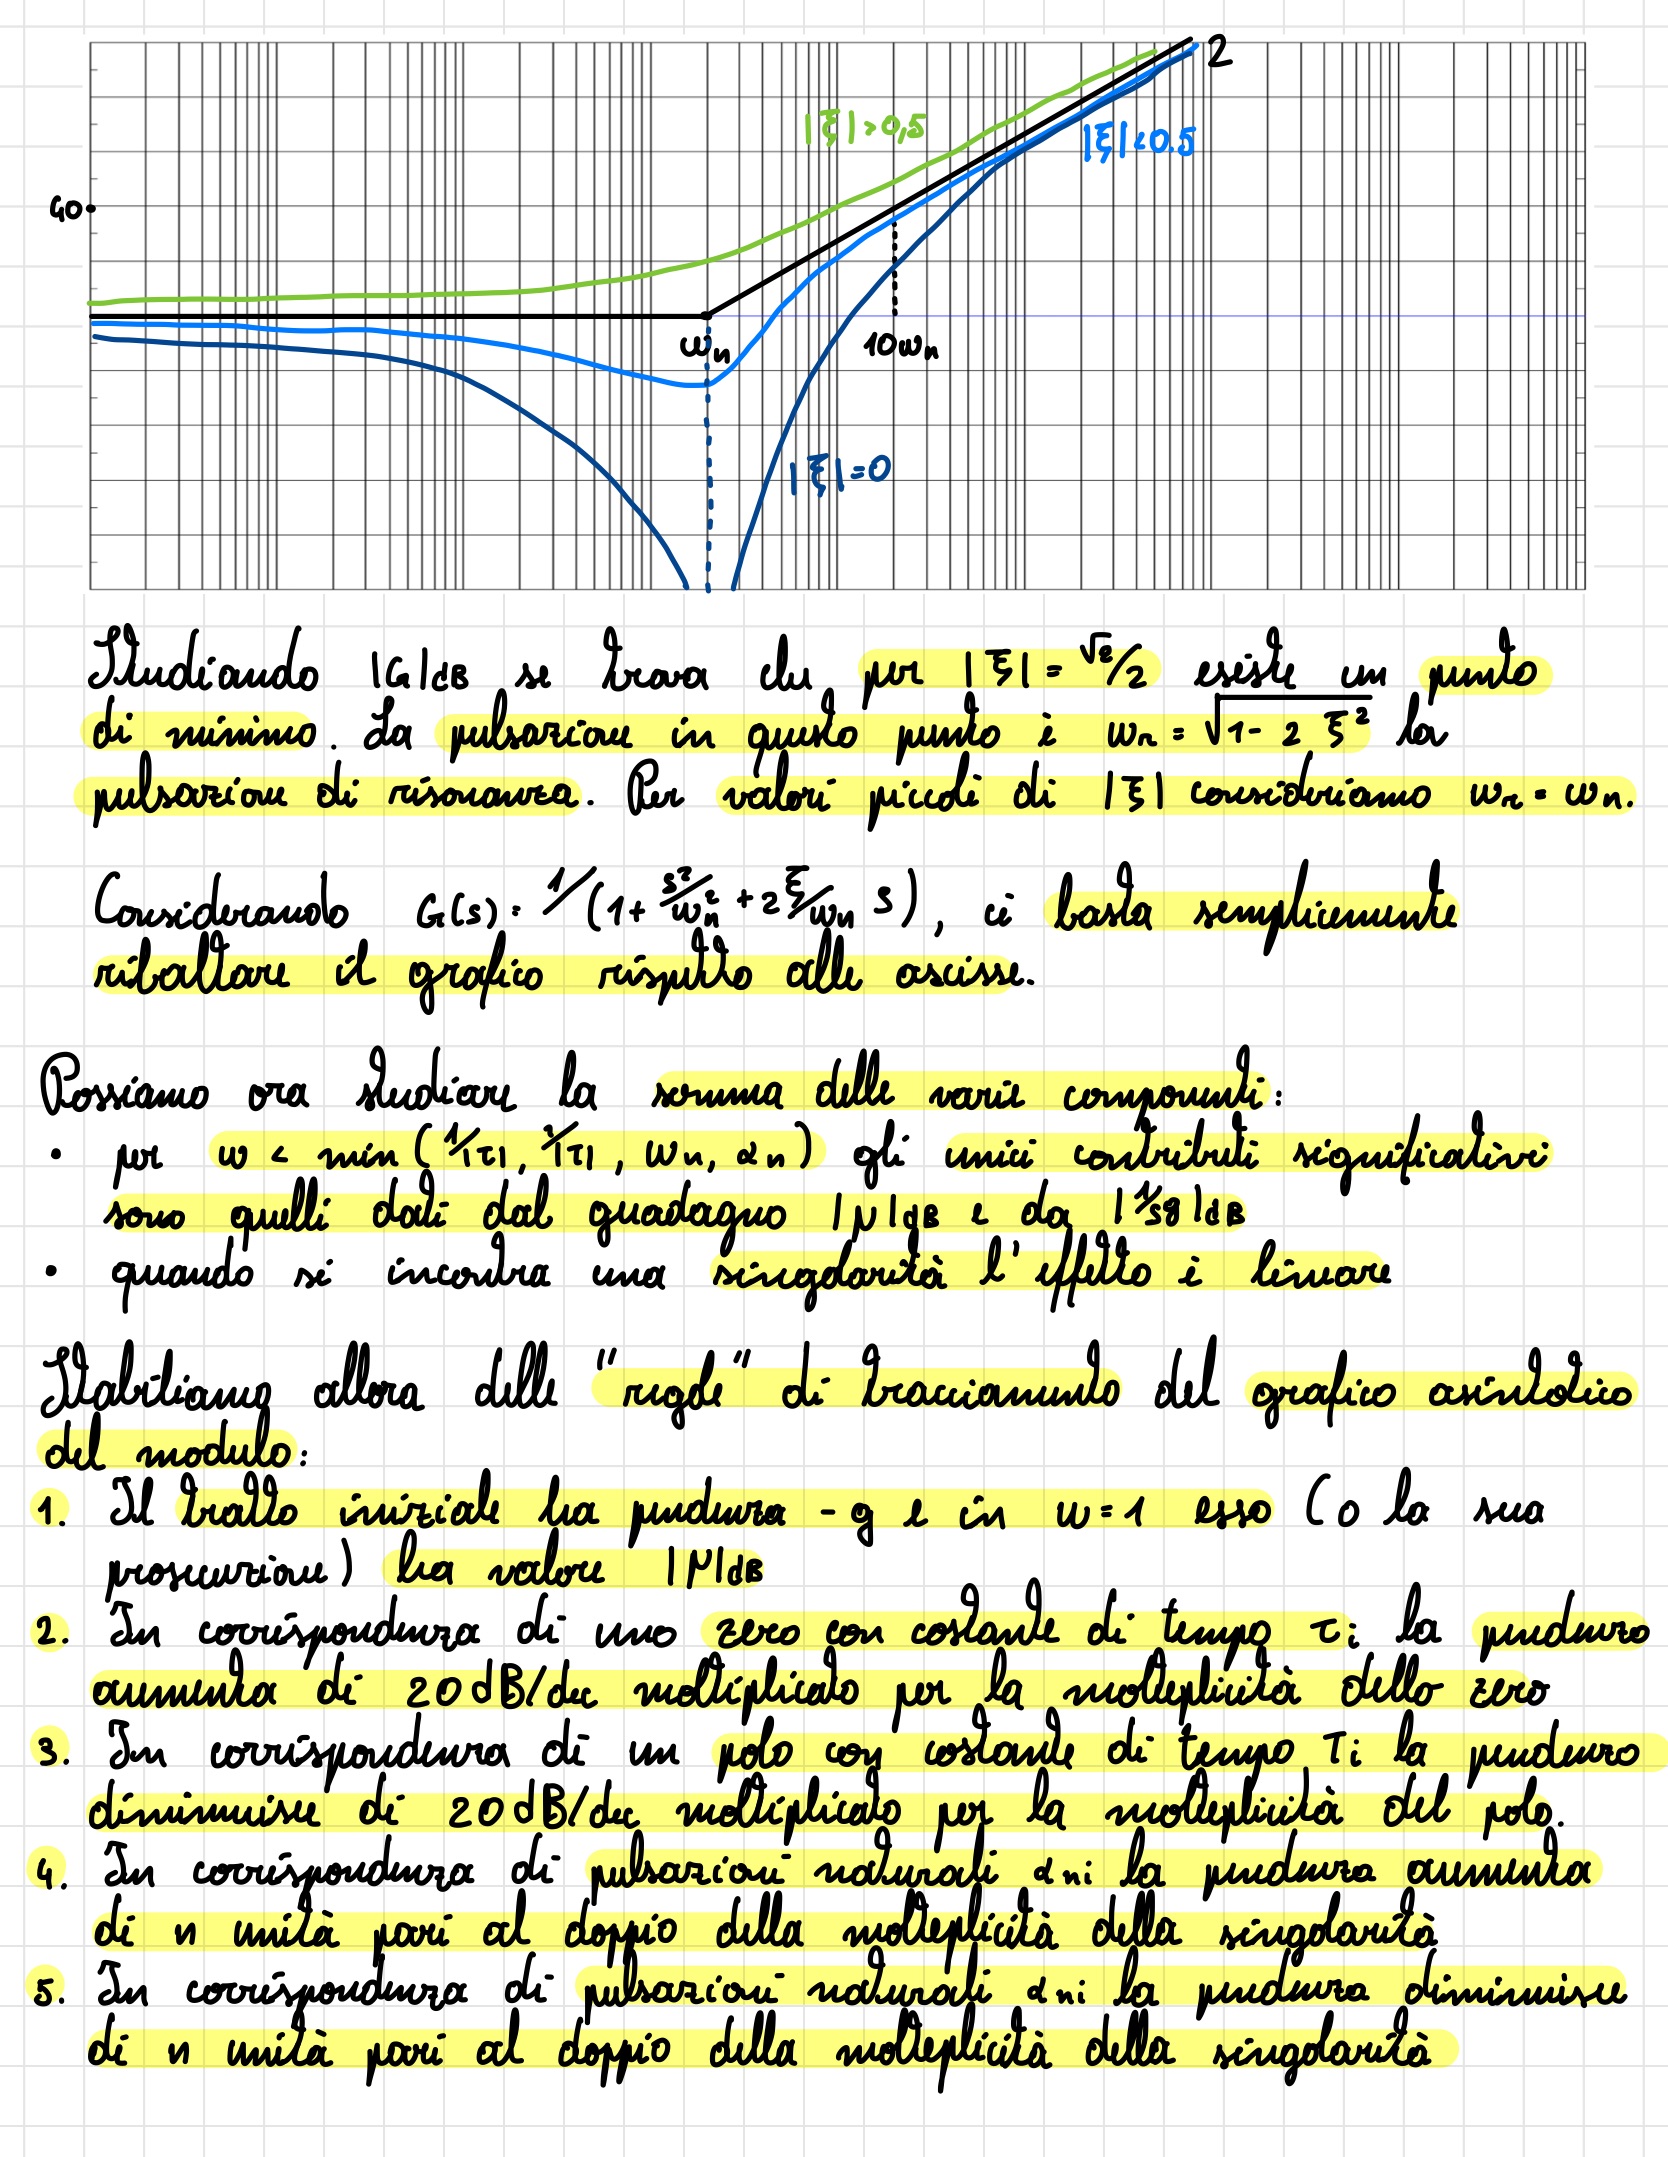 2
|ξ|>0,5
|ξ|<0.5
40
ωn
10ωn
|ξ|=0
Studiando |G|dB se trova che per |ξ| = √2/2 esiste un punto
di minimo. La pulsazione in questo punto è ωr = √1-2 ξ² la
pulsazione di risonanza. Per valori piccoli di |ξ| consideriamo ωr = ωn.
Considerando G(s) = 1/(1+ s²/ωn² + 2 ξ/ωn s), ci basta semplicemente
ribaltare il grafico rispetto alle ascisse.
Possiamo ora studiare la somma delle varie componenti:
• per ω < min (1/|τ|, 1/|τ|, ωn, αn) gli unici contributi significativi
sono quelli dati dal guadagno |μ|dB e da |1/sg|dB
• quando si incontra una singolarità l'effetto è lineare
Stabiliamo allora delle "regole" di tracciamento del grafico asintotico
del modulo:
1. Il tratto iniziale ha pendenza -g e in ω=1 esso (o la sua
prosecuzione) ha valore |μ|dB
2. In corrispondenza di uno zero con costante di tempo τi la pendenza
aumenta di 20dB/dec moltiplicato per la molteplicità dello zero
3. In corrispondenza di un polo con costante di tempo Ti la pendenza
diminuisce di 20dB/dec moltiplicato per la molteplicità del polo.
4. In corrispondenza di pulsazioni naturali αni la pendenza aumenta
di n unità pari al doppio della molteplicità della singolarità
5. In corrispondenza di pulsazioni naturali αni la pendenza diminuisce
di n unità pari al doppio della molteplicità della singolarità